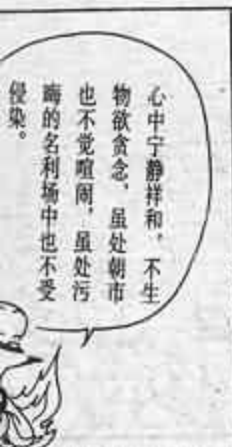 心中宁静祥和，不生
物欲贪念，虽处朝市
也不觉喧闹，虽处污
晦的名利场中也不受
侵染。